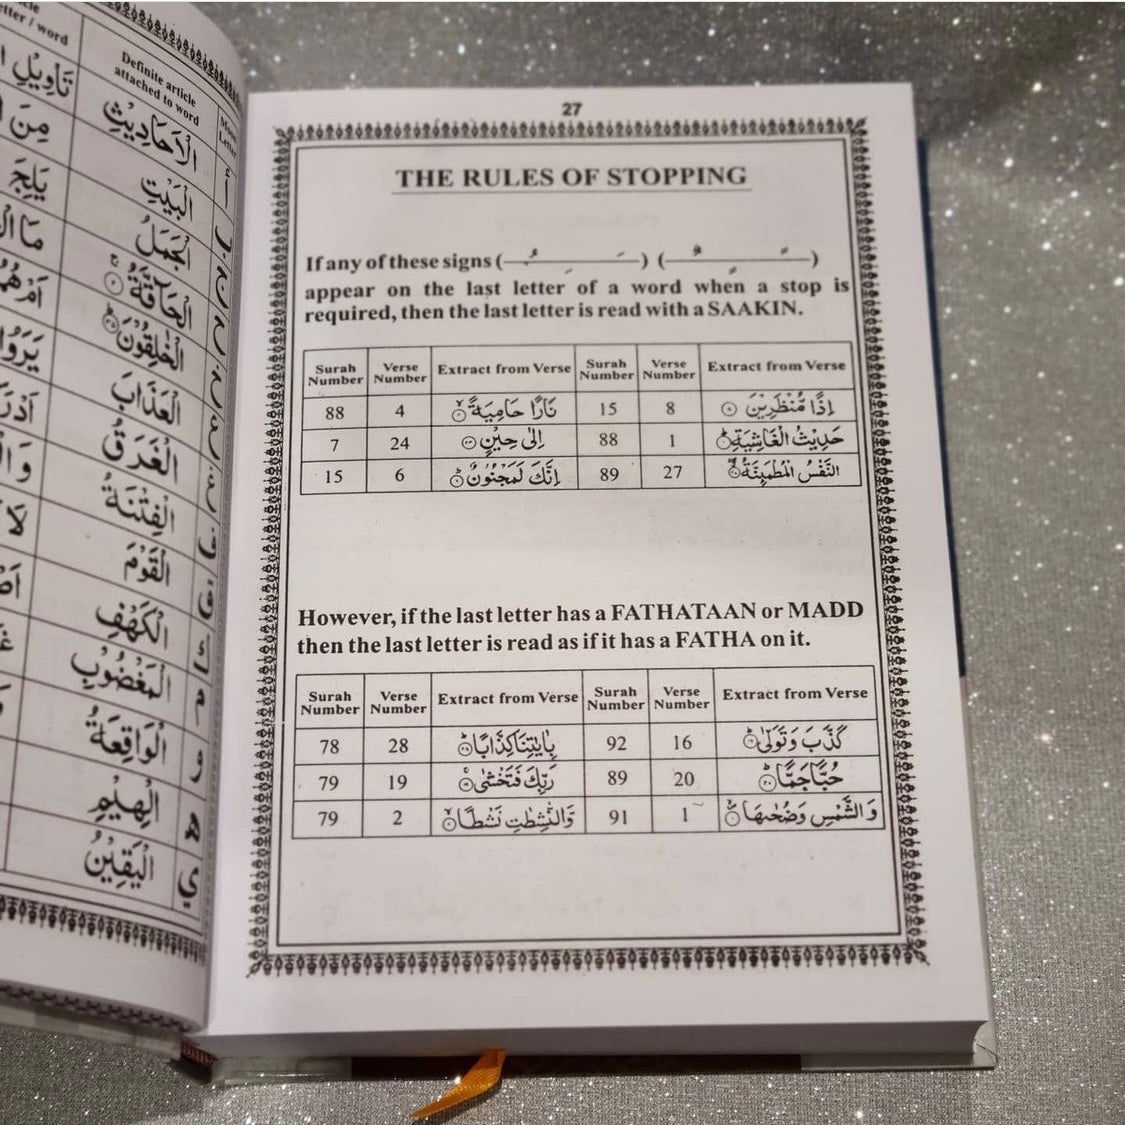 Letter / word
Definite article
attached to word
الْاَحَادِيْثِ
الْبَيْتِ
الْجَمَلُ
الْحَاقَّةُ
الْخٰلِقُوْنَ
الْعَذَابَ
الْغَرَقُ
الْفِتْنَةُ
الْقَوْمَ
الْكَهْفِ
الْمَغْضُوْبِ
الْوَاقِعَةُ
الْهِيْمِ
الْيَقِيْنُ
27
THE RULES OF STOPPING
If any of these signs ( ) ( )
appear on the last letter of a word when a stop is
required, then the last letter is read with a SAAKIN.
Surah Number Verse Number Extract from Verse Surah Number Verse Number Extract from Verse
88 4 نَارًا حَامِيَةً 15 8 اِذًا مُّنْظَرِيْنَ
7 24 اِلٰى حِيْنٍ 88 1 حَدِيْثُ الْغَاشِيَةِ
15 6 اِنَّكَ لَمَجْنُوْنٌ 89 27 النَّفْسُ الْمُطْمَئِنَّةُ
However, if the last letter has a FATHATAAN or MADD
then the last letter is read as if it has a FATHA on it.
Surah Number Verse Number Extract from Verse Surah Number Verse Number Extract from Verse
78 28 بِاٰيٰتِنَا كِذَّابًا 92 16 كَذَّبَ وَتَوَلّٰى
79 19 رَبِّكَ فَتَخْشٰى 89 20 حُبًّا جَمًّا
79 2 وَالنّٰشِطٰتِ نَشْطًا 91 1 وَالشَّمْسِ وَضُحٰىهَا